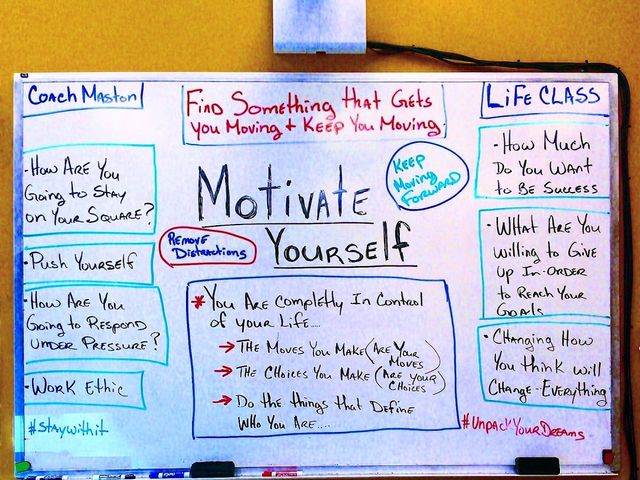 Coach Maston
Find Something that Gets
you Moving + Keep You Moving
Life CLASS
• How Are You
Going to Stay
on Your Square?
• Push Yourself
• How Are You
Going to Respond
Under Pressure?
• Work Ethic
#Staywithit
Motivate
Yourself
Keep
Moving
Forward
Remove
Distractions
* You Are Completly In Control
of your Life....
→ The Moves You Make (Are Your
Moves)
→ The Choices You Make (Are your
Choices)
→ Do the things that Define
Who You Are....
• How Much
Do You Want
to Be Success
• What Are You
willing to Give
Up In-Order
to Reach Your
Goals
• Changing How
You think will
Change-Everything
#UnpackYourDreams